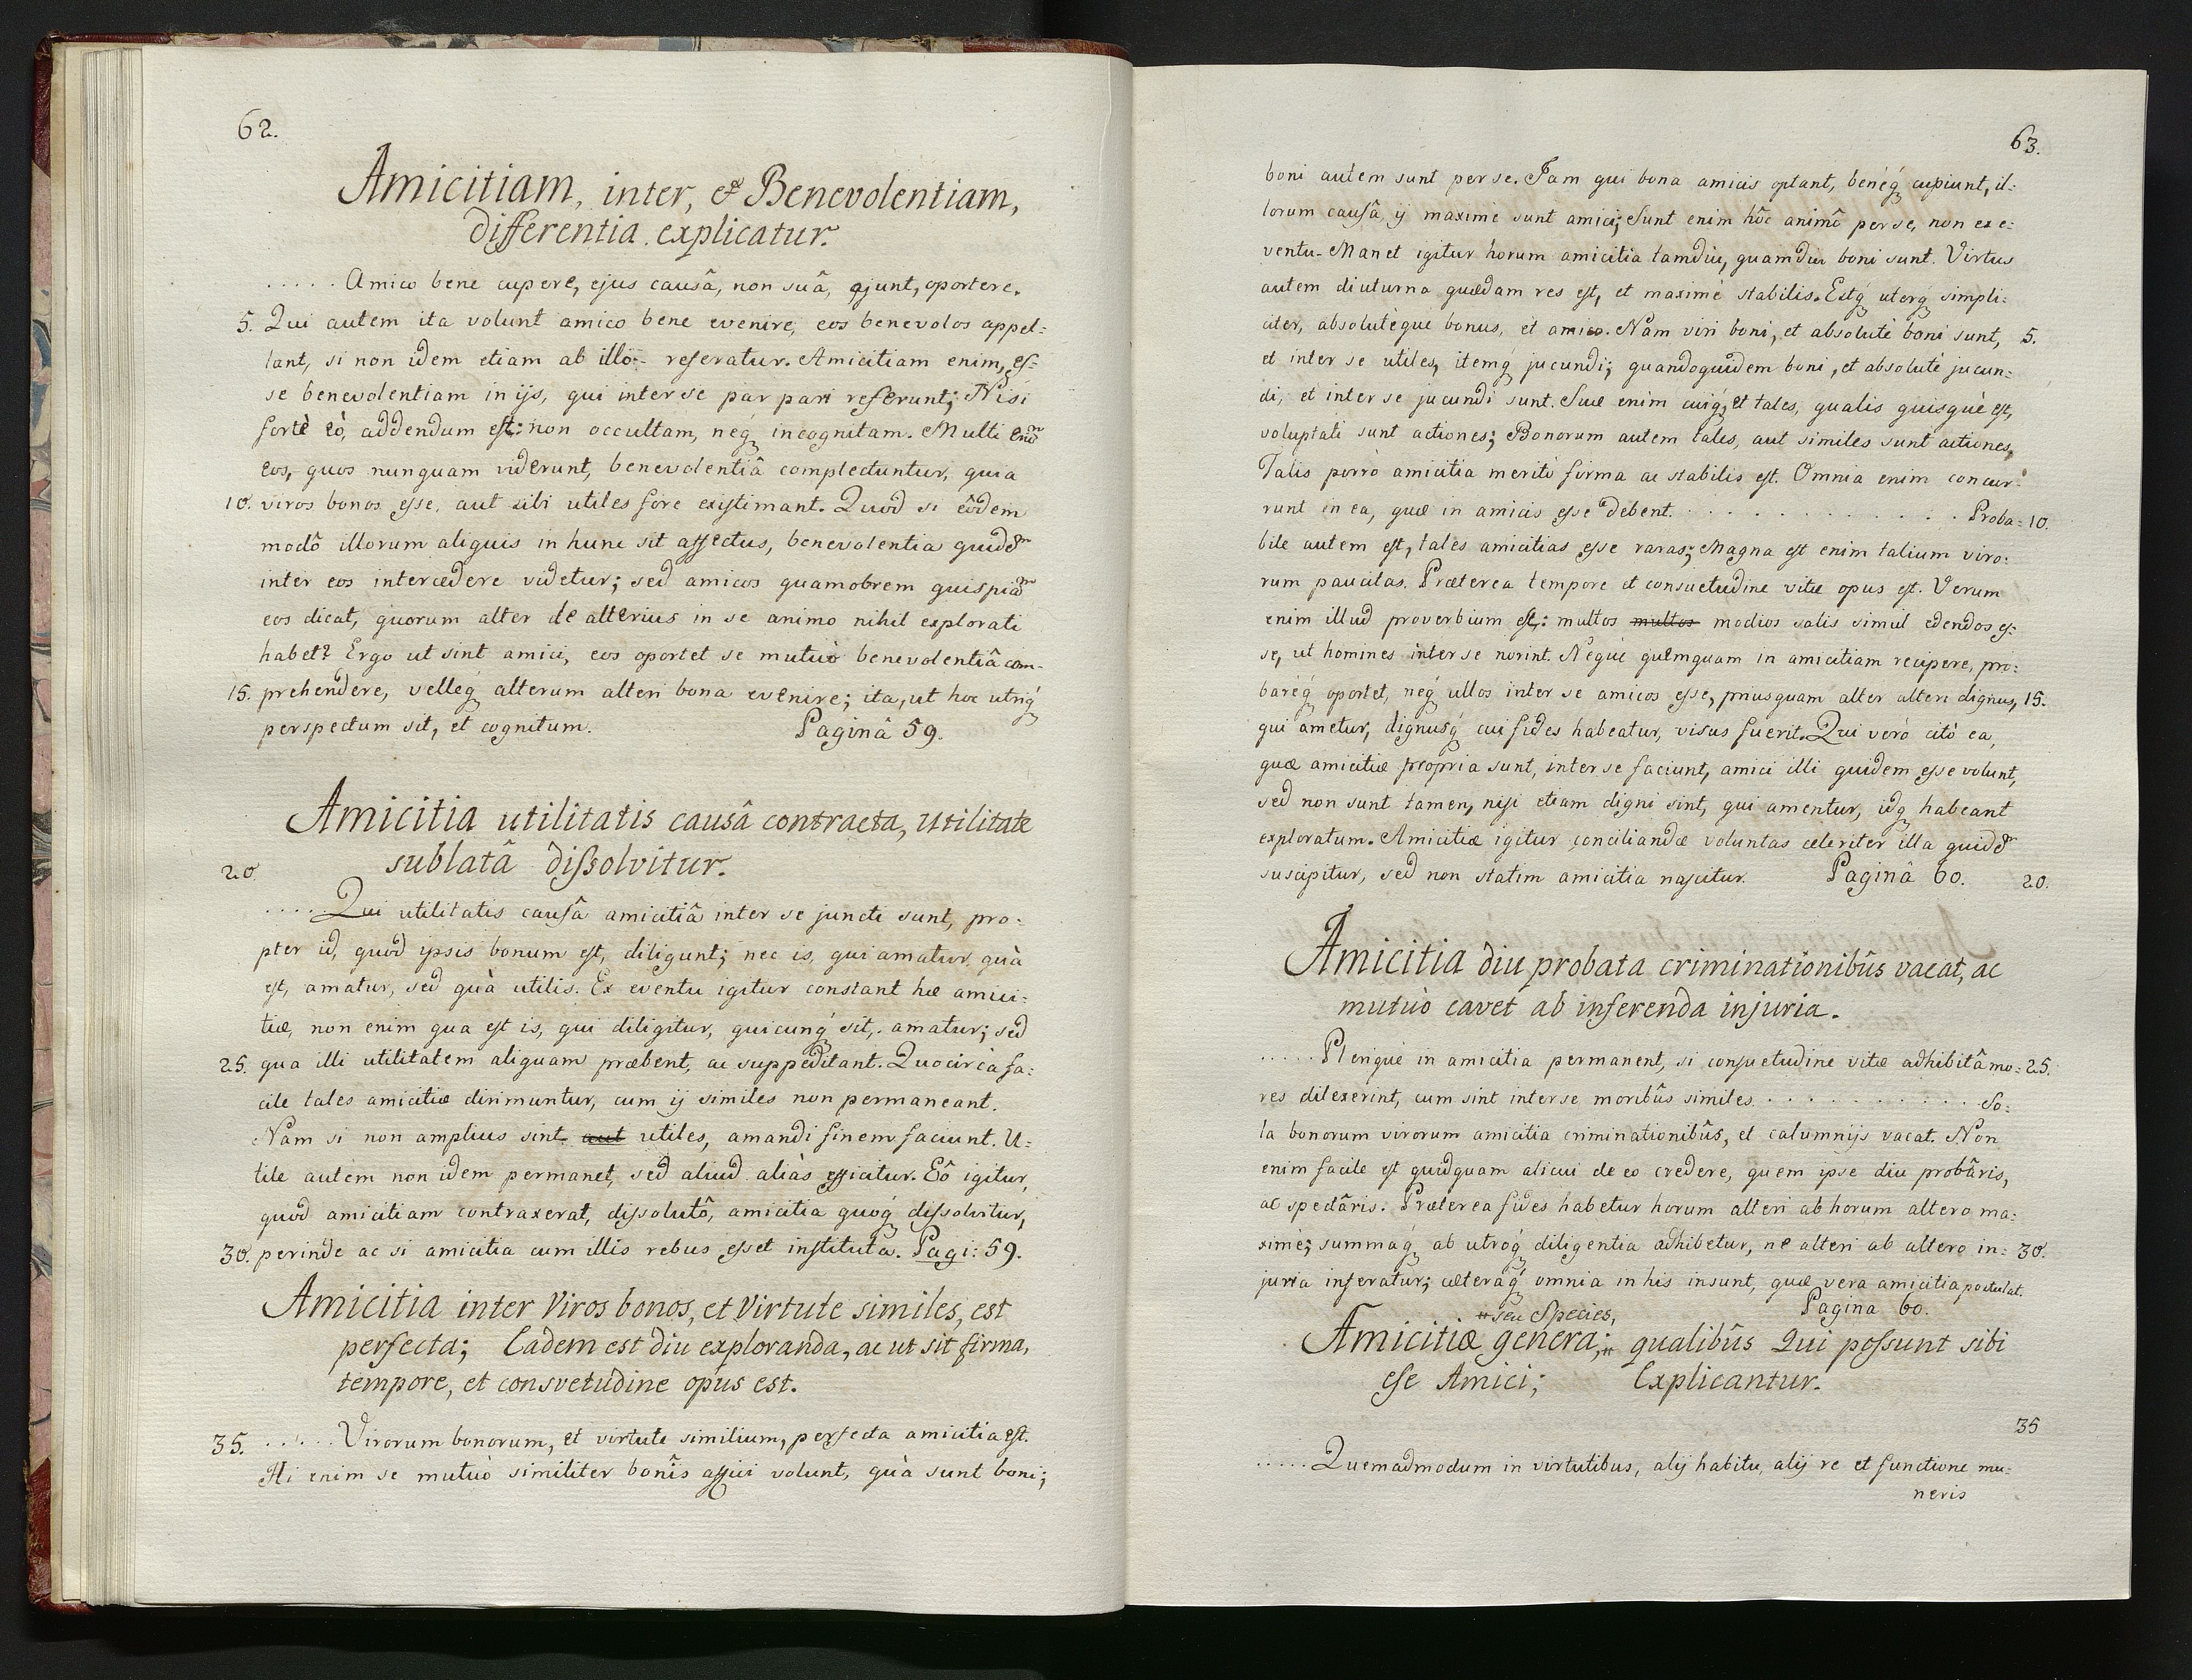 62.
Amicitiam, inter, & Benevolentiam,
differentia explicatur.
..... Amico bene cupere, ejus causâ, non suâ, ajunt, oportere.
5. Qui autem ita volunt amico bene evenire, eos benevolos appel=
lant, si non idem etiam ab illo referatur. Amicitiam enim, es=
se benevolentiam in ijs, qui inter se par pari referunt; Nisi
fortè eò, addendum est: non occultam, neq́ incognitam. Multi enim
eos, quos nunquam viderunt, benevolentiâ complectuntur, quia
10. viros bonos esse, aut sibi utiles fore existimant. Quod si eôdem
modô illorum aliquis in hunc sit affectus, benevolentia quidem
inter eos intercedere videtur; sed amicos quamobrem quispiam
eos dicat, quorum alter de alterius in se animo nihil explorati
habet? Ergo ut sint amici, eos oportet se mutuò benevolentiâ com-
15. prehendere, velleq́ alterum alteri bona evenire; ita, ut hoc utriq́
perspectum sit, et cognitum. Paginâ 59.
Amicitia utilitatis causâ contracta, utilitate
20. sublatâ dissolvitur.
..... Qui utilitatis causâ amicitiâ inter se juncti sunt, pro=
pter id, quod ipsis bonum est, diligunt; nec is, qui amatur, quà
est, amatur, sed quà utilis. Ex eventu igitur constant hæ amici=
tiæ, non enim qua est is, qui diligitur, quicunq́ sit, amatur; sed
25. qua illi utilitatem aliquam præbent, ac suppeditant. Quocircà fa=
cile tales amicitiæ dirimuntur, cum ij similes non permaneant.
Nam si non amplius sint aut utiles, amandi finem faciunt. U=
tile autem non idem permanet, sed aliud aliàs efficitur. Eô igitur,
quod amicitiam contraxerat, dissolutô, amicitia quoq́ dissolvitur,
30. perinde ac si amicitia cum illis rebus esset instituta. Pagi: 59.
Amicitia inter Viros bonos, et Virtute similes, est
perfecta; Eadem est diu exploranda, ac ut sit firma,
tempore, et consvetudine opus est.
35. ..... Virorum bonorum, et virtute similium, perfecta amicitia est.
Hi enim se mutuò similiter bonîs affici volunt, quà sunt boni;
63.
boni autem sunt per se. Jam qui bona amicis optant, beneq́ cupiunt, il=
lorum causâ, ij maximè sunt amici; Sunt enim hôc animô per se, non ex e=
ventu. Manet igitur horum amicitia tamdiu, quamdiu boni sunt. Virtus
autem diuturna quædam res est, et maximè stabilis. Estq́ uterq́ simpli=
citer, absolutèque bonus, et amico. Nam viri boni, et absolutè boni sunt, 5.
et inter se utiles, itemq́ jucundi; quandoquidem boni, et absolutè jucun=
di, et inter se jucundi sunt. Suæ enim cuiq́, et tales, qualis quisquè est,
voluptati sunt actiones; Bonorum autem tales, aut similes sunt actiones.
Talis porrò amicitia meritò firma ac stabilis est. Omnia enim concur=
runt in ea, quæ in amicis esse debent. . . . . . . . . . . . . Proba= 10.
bile autem est, tales amicitias esse raras; Magna est enim talium viro=
rum paucitas. Præterea tempore et consuetudine vitæ opus est. Verum
enim illud proverbium est: multos multos modios salis simul edendos es=
se, ut homines inter se norint. Nequè quemquam in amicitiam recipere, pro=
bareq́ oportet, neq́ ullos inter se amicos esse, priusquam alter alteri dignus, 15.
qui ametur, dignusq́ cui fides habeatur, visus fuerit. Qui verò citò ea,
quæ amicitiæ propria sunt, inter se faciunt, amici illi quidem esse volunt,
sed non sunt tamen, nisi etiam digni sint, qui amentur, idq́ habeant
exploratum. Amicitiæ igitur conciliandæ voluntas celeriter illa quidem
suscipitur, sed non statim amicitia nascitur. Paginâ 60. 20.
Amicitia diu probata criminationibûs vacat, ac
mutuò cavet ab inferenda injuria.
..... Pleriquè in amicitia permanent, si consuetudine vitæ adhibitâ mo= 25.
res dilexerint, cum sint inter se moribûs similes. . . . . . . . . . . So=
la bonorum virorum amicitia criminationibûs, et calumnijs vacat. Non
enim facile est quidquam alicui de eo credere, quem ipse diu probâris,
ac spectâris. Præterea fides habetur horum alteri ab horum altero ma=
ximè; summaq́ ab utroq́ diligentia adhibetur, ne alteri ab altero in= 30.
juria inferatur; cæteraq́ omnia in his insunt, quæ vera amicitia postulat.
Pagina 60.
seu Species,
Amicitiæ genera; qualibûs Qui possunt sibi
esse Amici; Explicantur.
35
..... Quemadmodum in virtutibus, alij habitu, alij re et functione mu=
neris